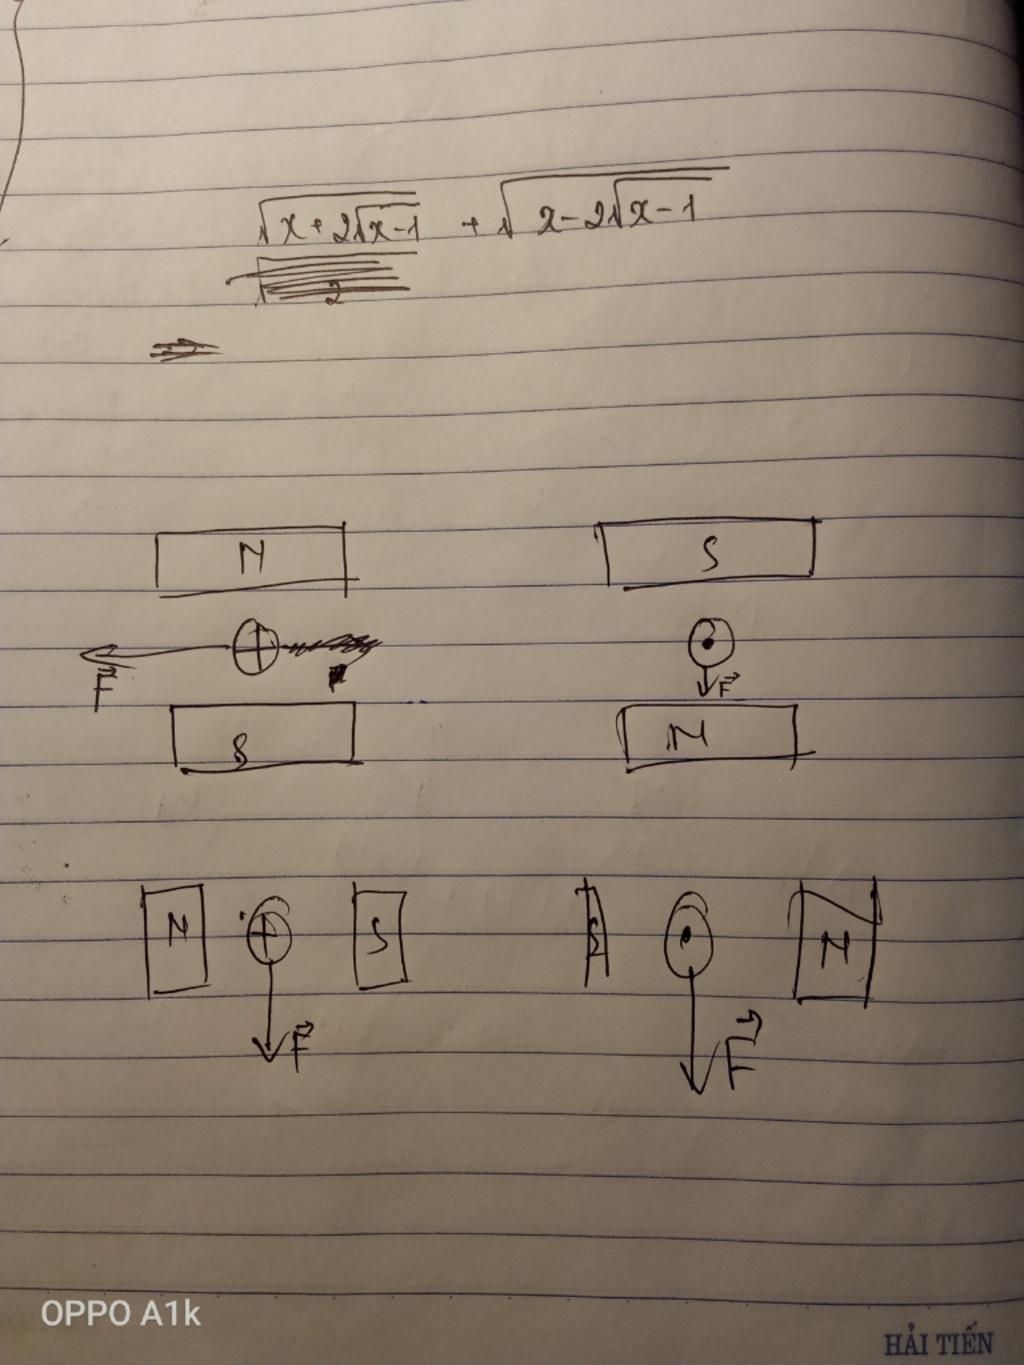 √(x + 2√(x-1)) + √(x - 2√(x-1))
2
N S
F F
S N
N S S N
F F
OPPO A1k
HẢI TIẾN